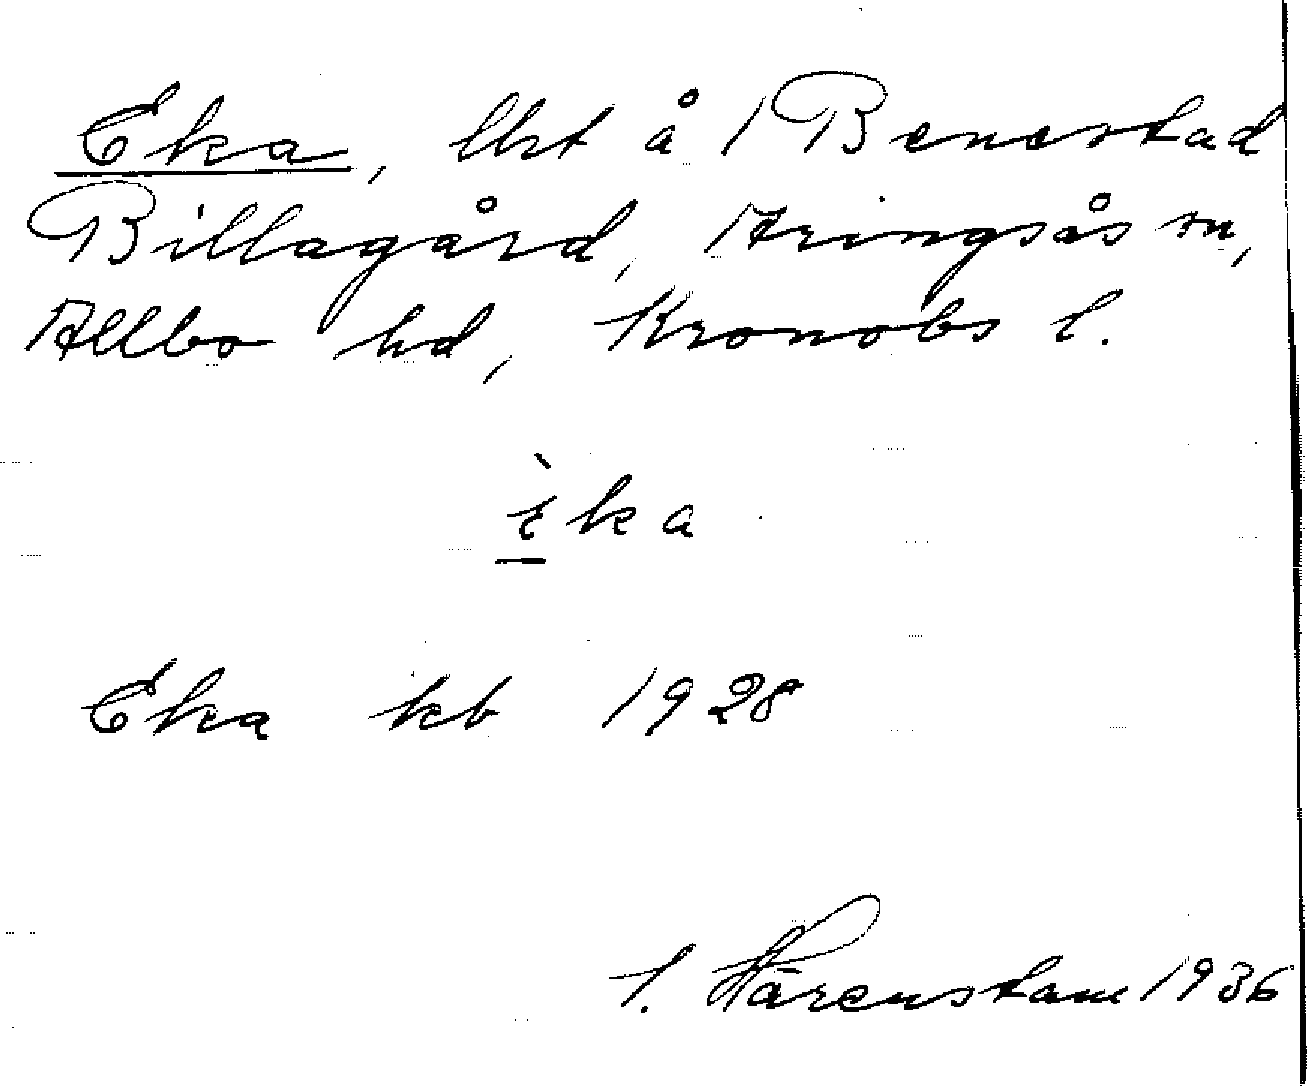 Eka, lht å 1 Benestad
Billagård, Aringsås sn,
Allbo hd, Kronobs l.
ὲka
Eka kb 1928
Härenstam 1936